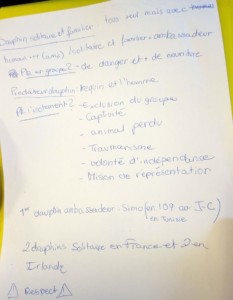 Dauphin solitaire et familier tous seul mais avec
humain → familier / solitaire et familier = ambassadeur
Pk en groupe? - de danger et + de nourriture
Prédateur dauphin requin et l'homme
Pk l'isolement? - Exclusion du groupe
- Captivité
- animal perdu
- Traumatisme
- volonté d'indépendance
- Mision de représentation
1er dauphin ambassadeur - Simo (en 109 av J-C)
en Tunisie
2 dauphins Solitaire en France et 2 en
Irlande
Respect